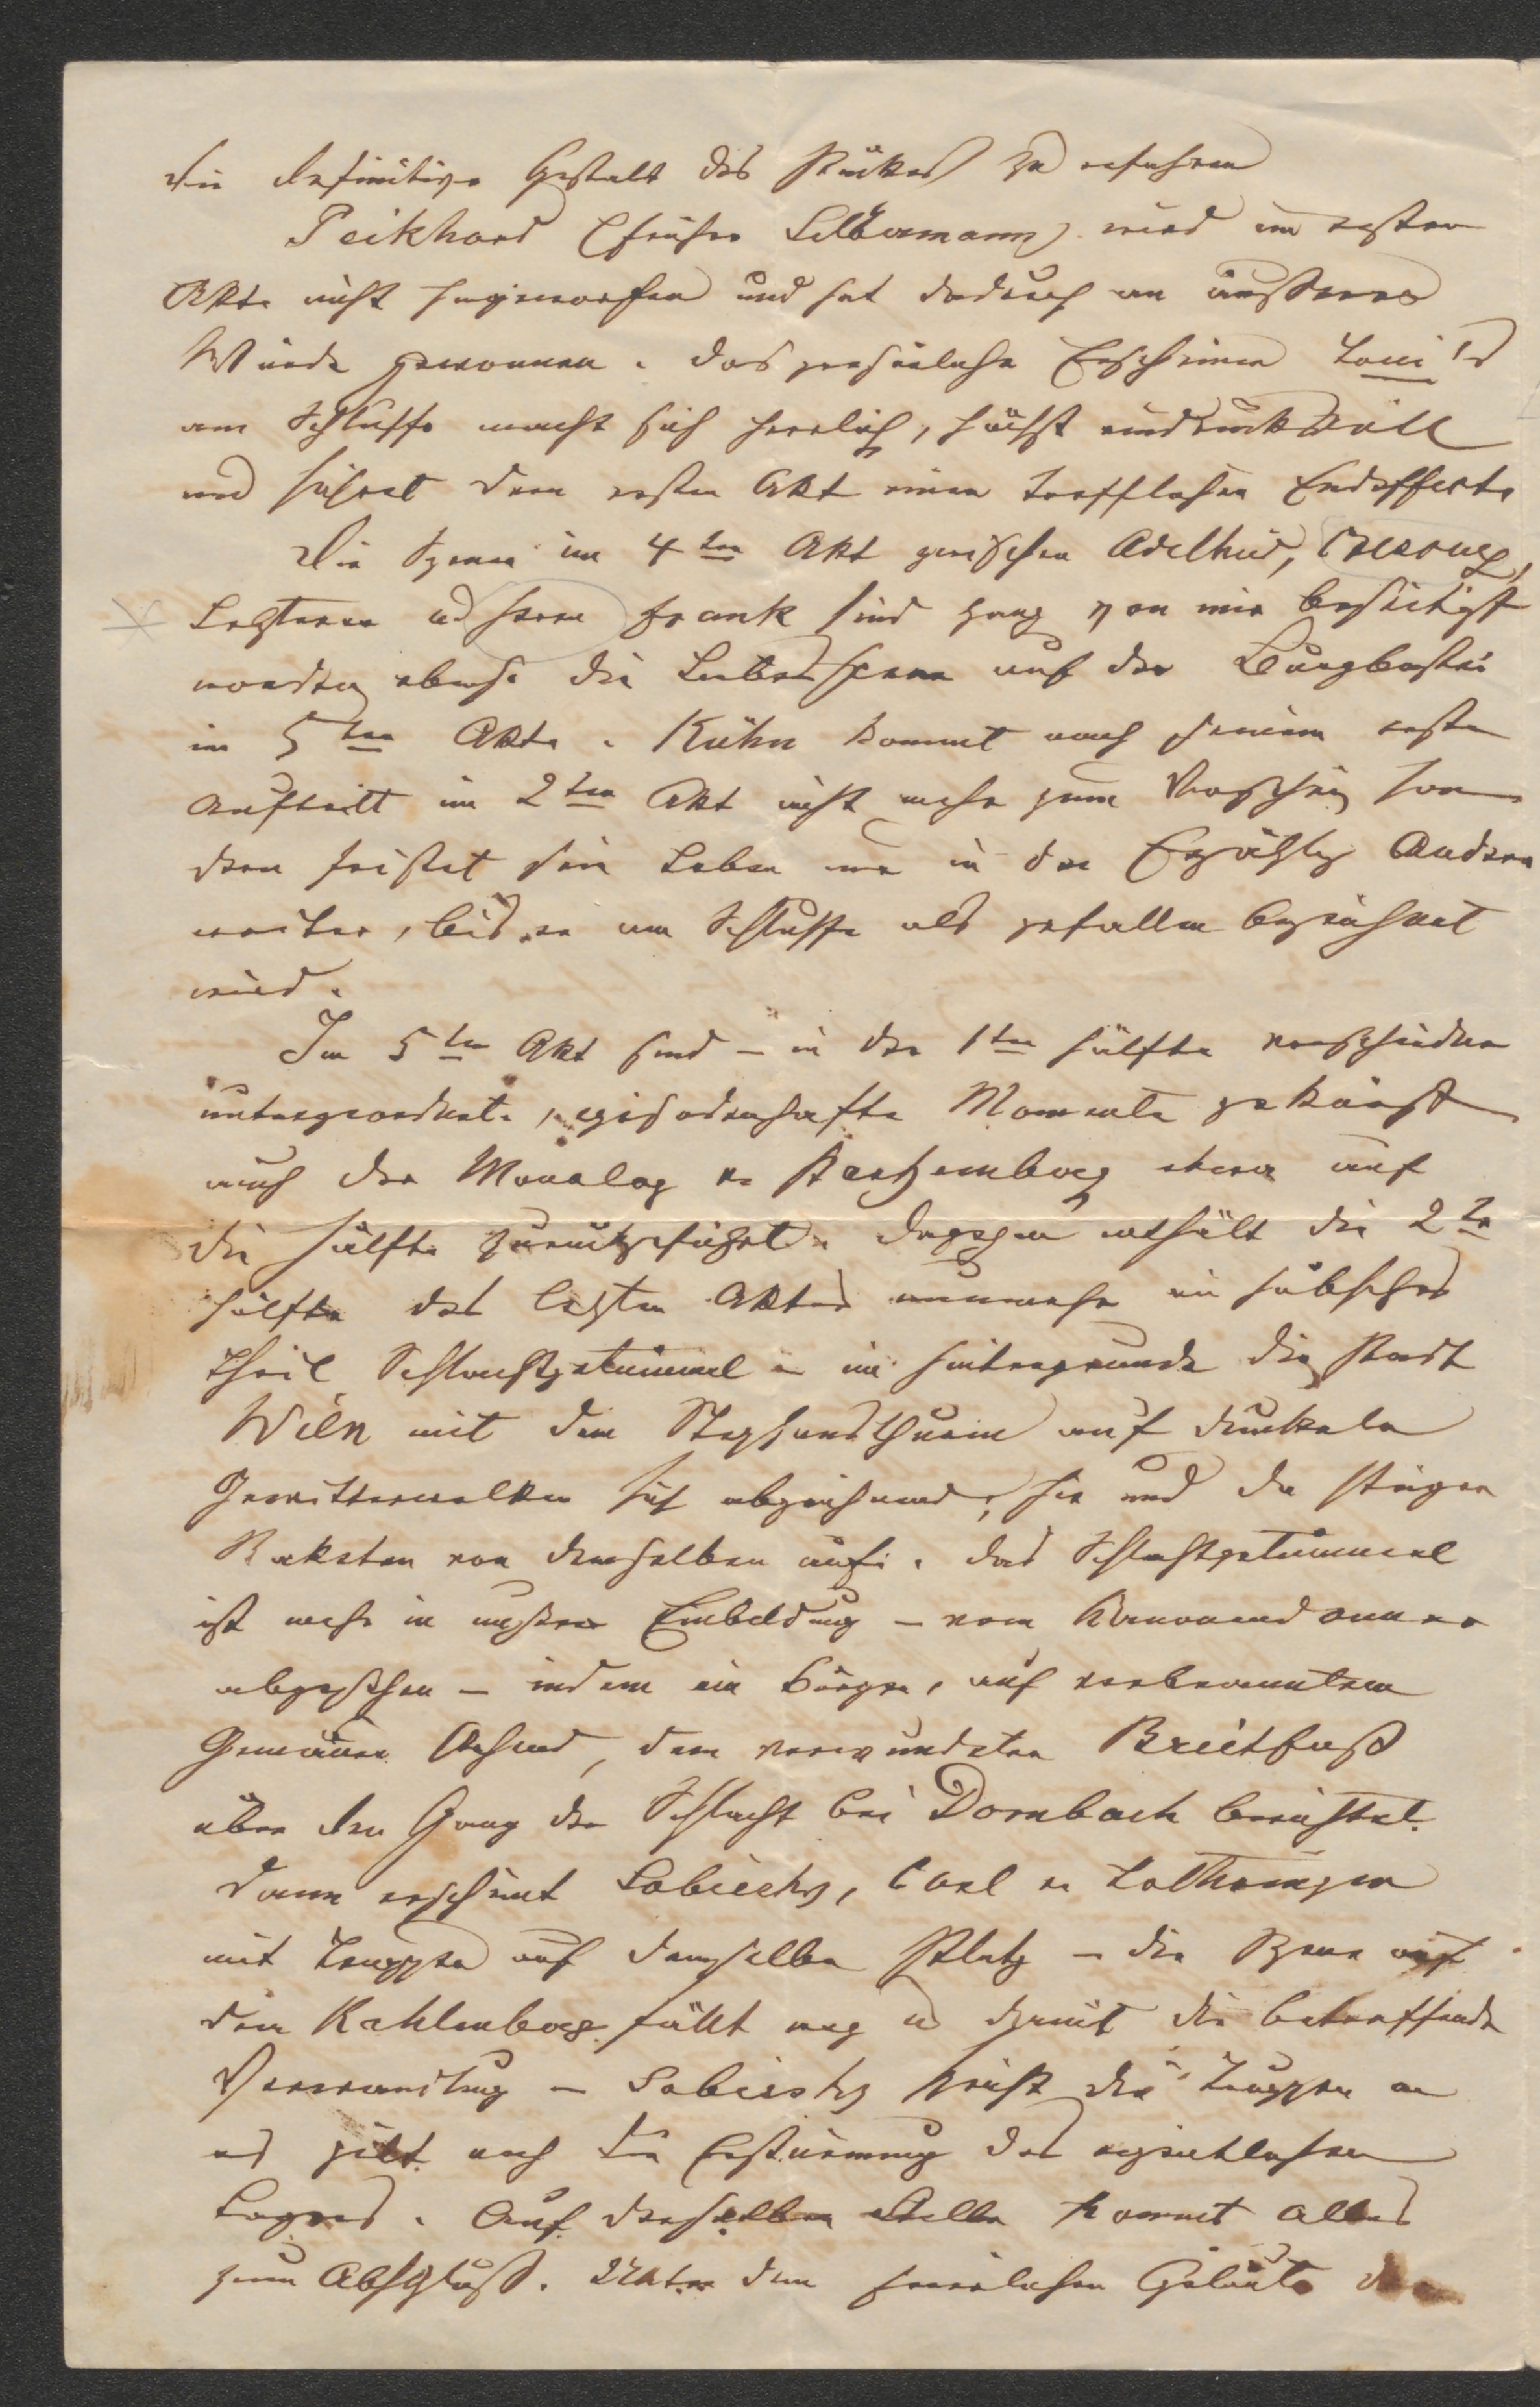 die definitive Gestalt des Stückes zu erfahren
Peikhard (früher Silbermann) wird im ersten
Akte nicht hingeworfen und hat dadurch an äusserer
Würde gewonnen. Das persönliche Erscheinen Toni's
am Schlusse macht sich herrlich, höchst eindrucksvoll
und sichert dem ersten Akt einen trefflichen Endeffekt.
Die Szenen im 4ten Akt zwischen Adelheid,
Letzterer u Herrn Frank sind ganz von mir beseitigt
worden ebenso die Liebesscene auf der Burgbastei
im 5ten Akte. Kühn kommt nach seinem ersten
Auftritt im 2ten Akt nicht mehr zum Vorschein son
dern fristet sein Leben nur in der Erzählg Anderer
weiter, bis er am Schlusse als gefallen bezeichnet
wird.
Im 5ten Akt sind – in der 1ten Hälfte verschiedene
untergeordnete, episodenhafte Momente gekürzt
auch der Monolog v. Starhemberg etwa auf
die Hälfte zurückgeführt. Dagegen enthält die 2te
Hälfte des letzten Aktes nunmehr ein hübsches
Theil Schlachtgetümmel – im Hintergrunde die Stadt
Wien mit dem Stephansthurm auf dunkeln
Gewitterwolken sich abzeichnend, hie und da steigen
Raketen von demselben auf. Das Schlachtgetümmel
ist mehr in unserer Einbildung – vom Kanonendonner
abgesehen – indem ein Bürger, auf verbranntem
Gemäuer stehend, dem verwundeten Breitfuß
über den Gang der Schlacht bei Dornbach berichtet.
Dann erscheint Sobiesky, Carl v. Lothringen
mit Truppen auf demselben Platz – die Szene auf
dem Kahlenberg fällt weg u damit die betreffende
Verwandlung – Sobiesky die Truppen an
es gilt noch die Erstürmung des eigentlichen
Lagers. Auf derselben Stelle kommt alles
zum Abschluß. Unter dem feierlichen Geläute der